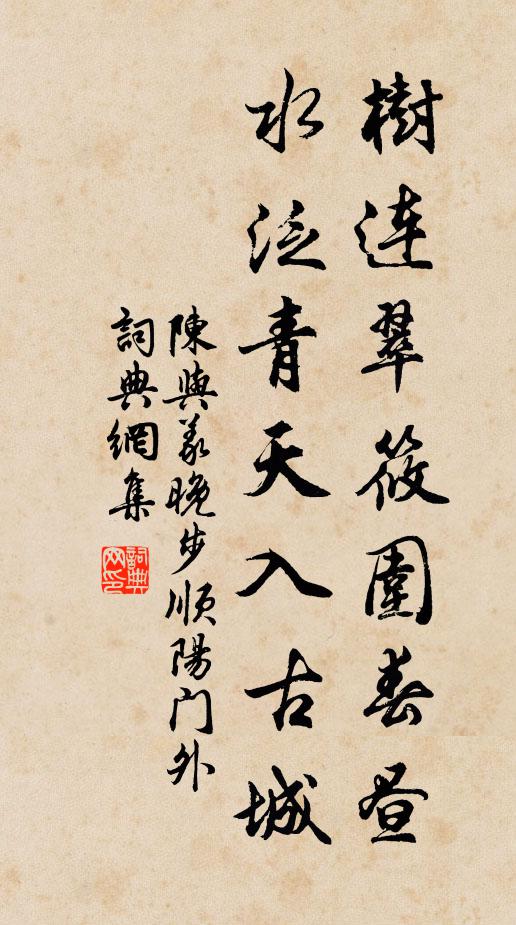 樹連翠筱圍春晝
水泛青天入古城
陳與義晚步順陽門外
詞典網集
詞典網印